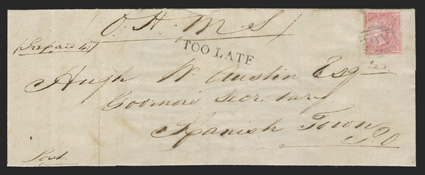 O. H. M. S
TOO LATE
Hugh W. Austin Esqr
Governor's Secretary
Spanish Town
P.O